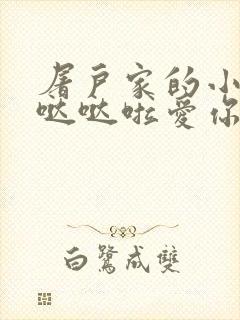 屠户家的小
哒哒啦爱你
白鹭成雙